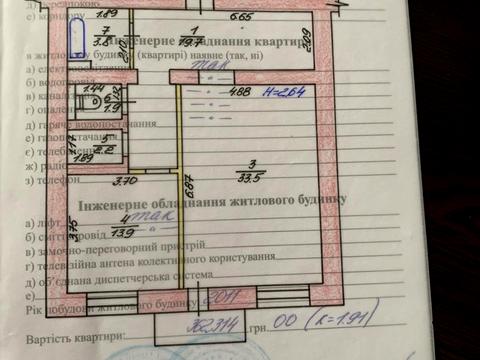 е) коридору
1.89
6.65
7
3.8
2.02
1
19.7
2.09
Інженерне обладнання квартири
в житловому будинку (квартирі) наявне (так, ні)
а) електроосвітлення
так
б) водопровід
1.44
4.88
H=2.64
6
1.9
в) каналі
г) опален
д) гаряче водопостачання
е) газопостачання
1.17
5
2.2
є) телебачення
1.89
ж) радіо
з) телефон
3.70
6.87
3
33.5
Інженерне обладнання житлового будинку
а) ліфт
4
13.9
так
3.75
б) сміттєпровід
в) замочно-переговорний пристрій
г) телевізійна антена колективного користування
д) об'єднана диспетчерська система
е)
Рік побудови житлового будинку 2011
Вартість квартири: 32.314 грн. 00 (к=1.91)